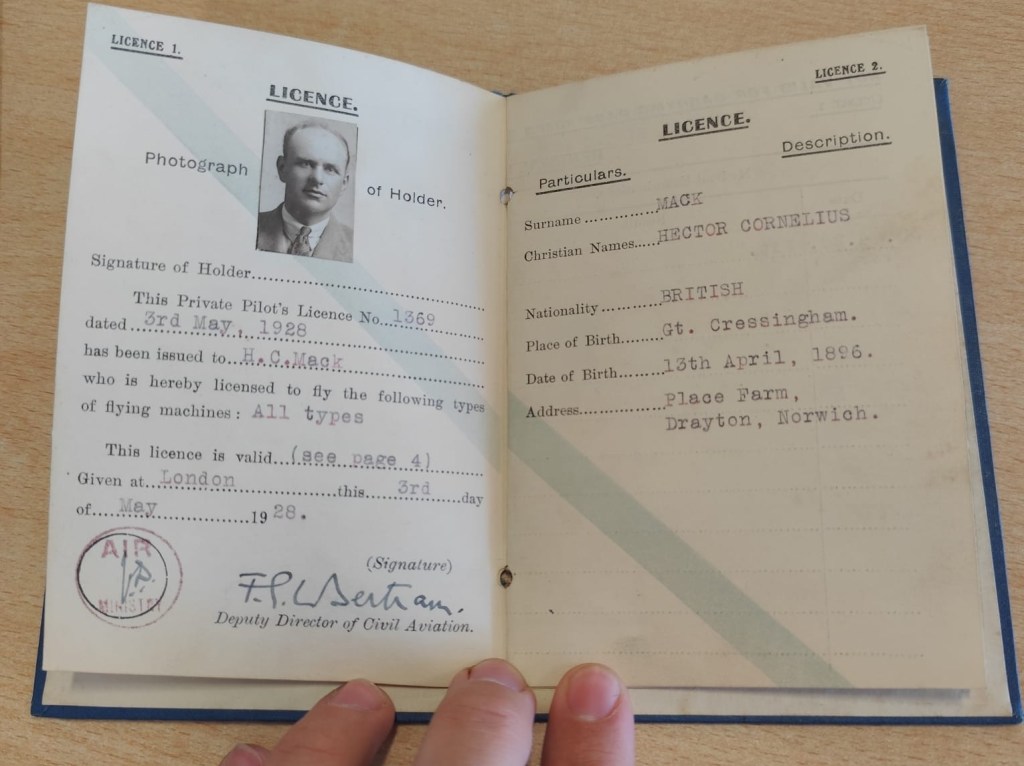 LICENCE 1.
LICENCE.
Photograph of Holder.
Signature of Holder..............................
This Private Pilot's Licence No. 1369
dated 3rd May, 1928
has been issued to H.C.Mack
who is hereby licensed to fly the following types
of flying machines: All types
This licence is valid (see page 4)
Given at London this 3rd day
of May 1928.
AIR
MINISTRY
(Signature)
F.G.L. Bertram.
Deputy Director of Civil Aviation.
LICENCE 2.
LICENCE.
Particulars. Description.
Surname MACK
Christian Names HECTOR CORNELIUS
Nationality BRITISH
Place of Birth Gt. Cressingham.
Date of Birth 13th April, 1896.
Address Place Farm,
Drayton, Norwich.